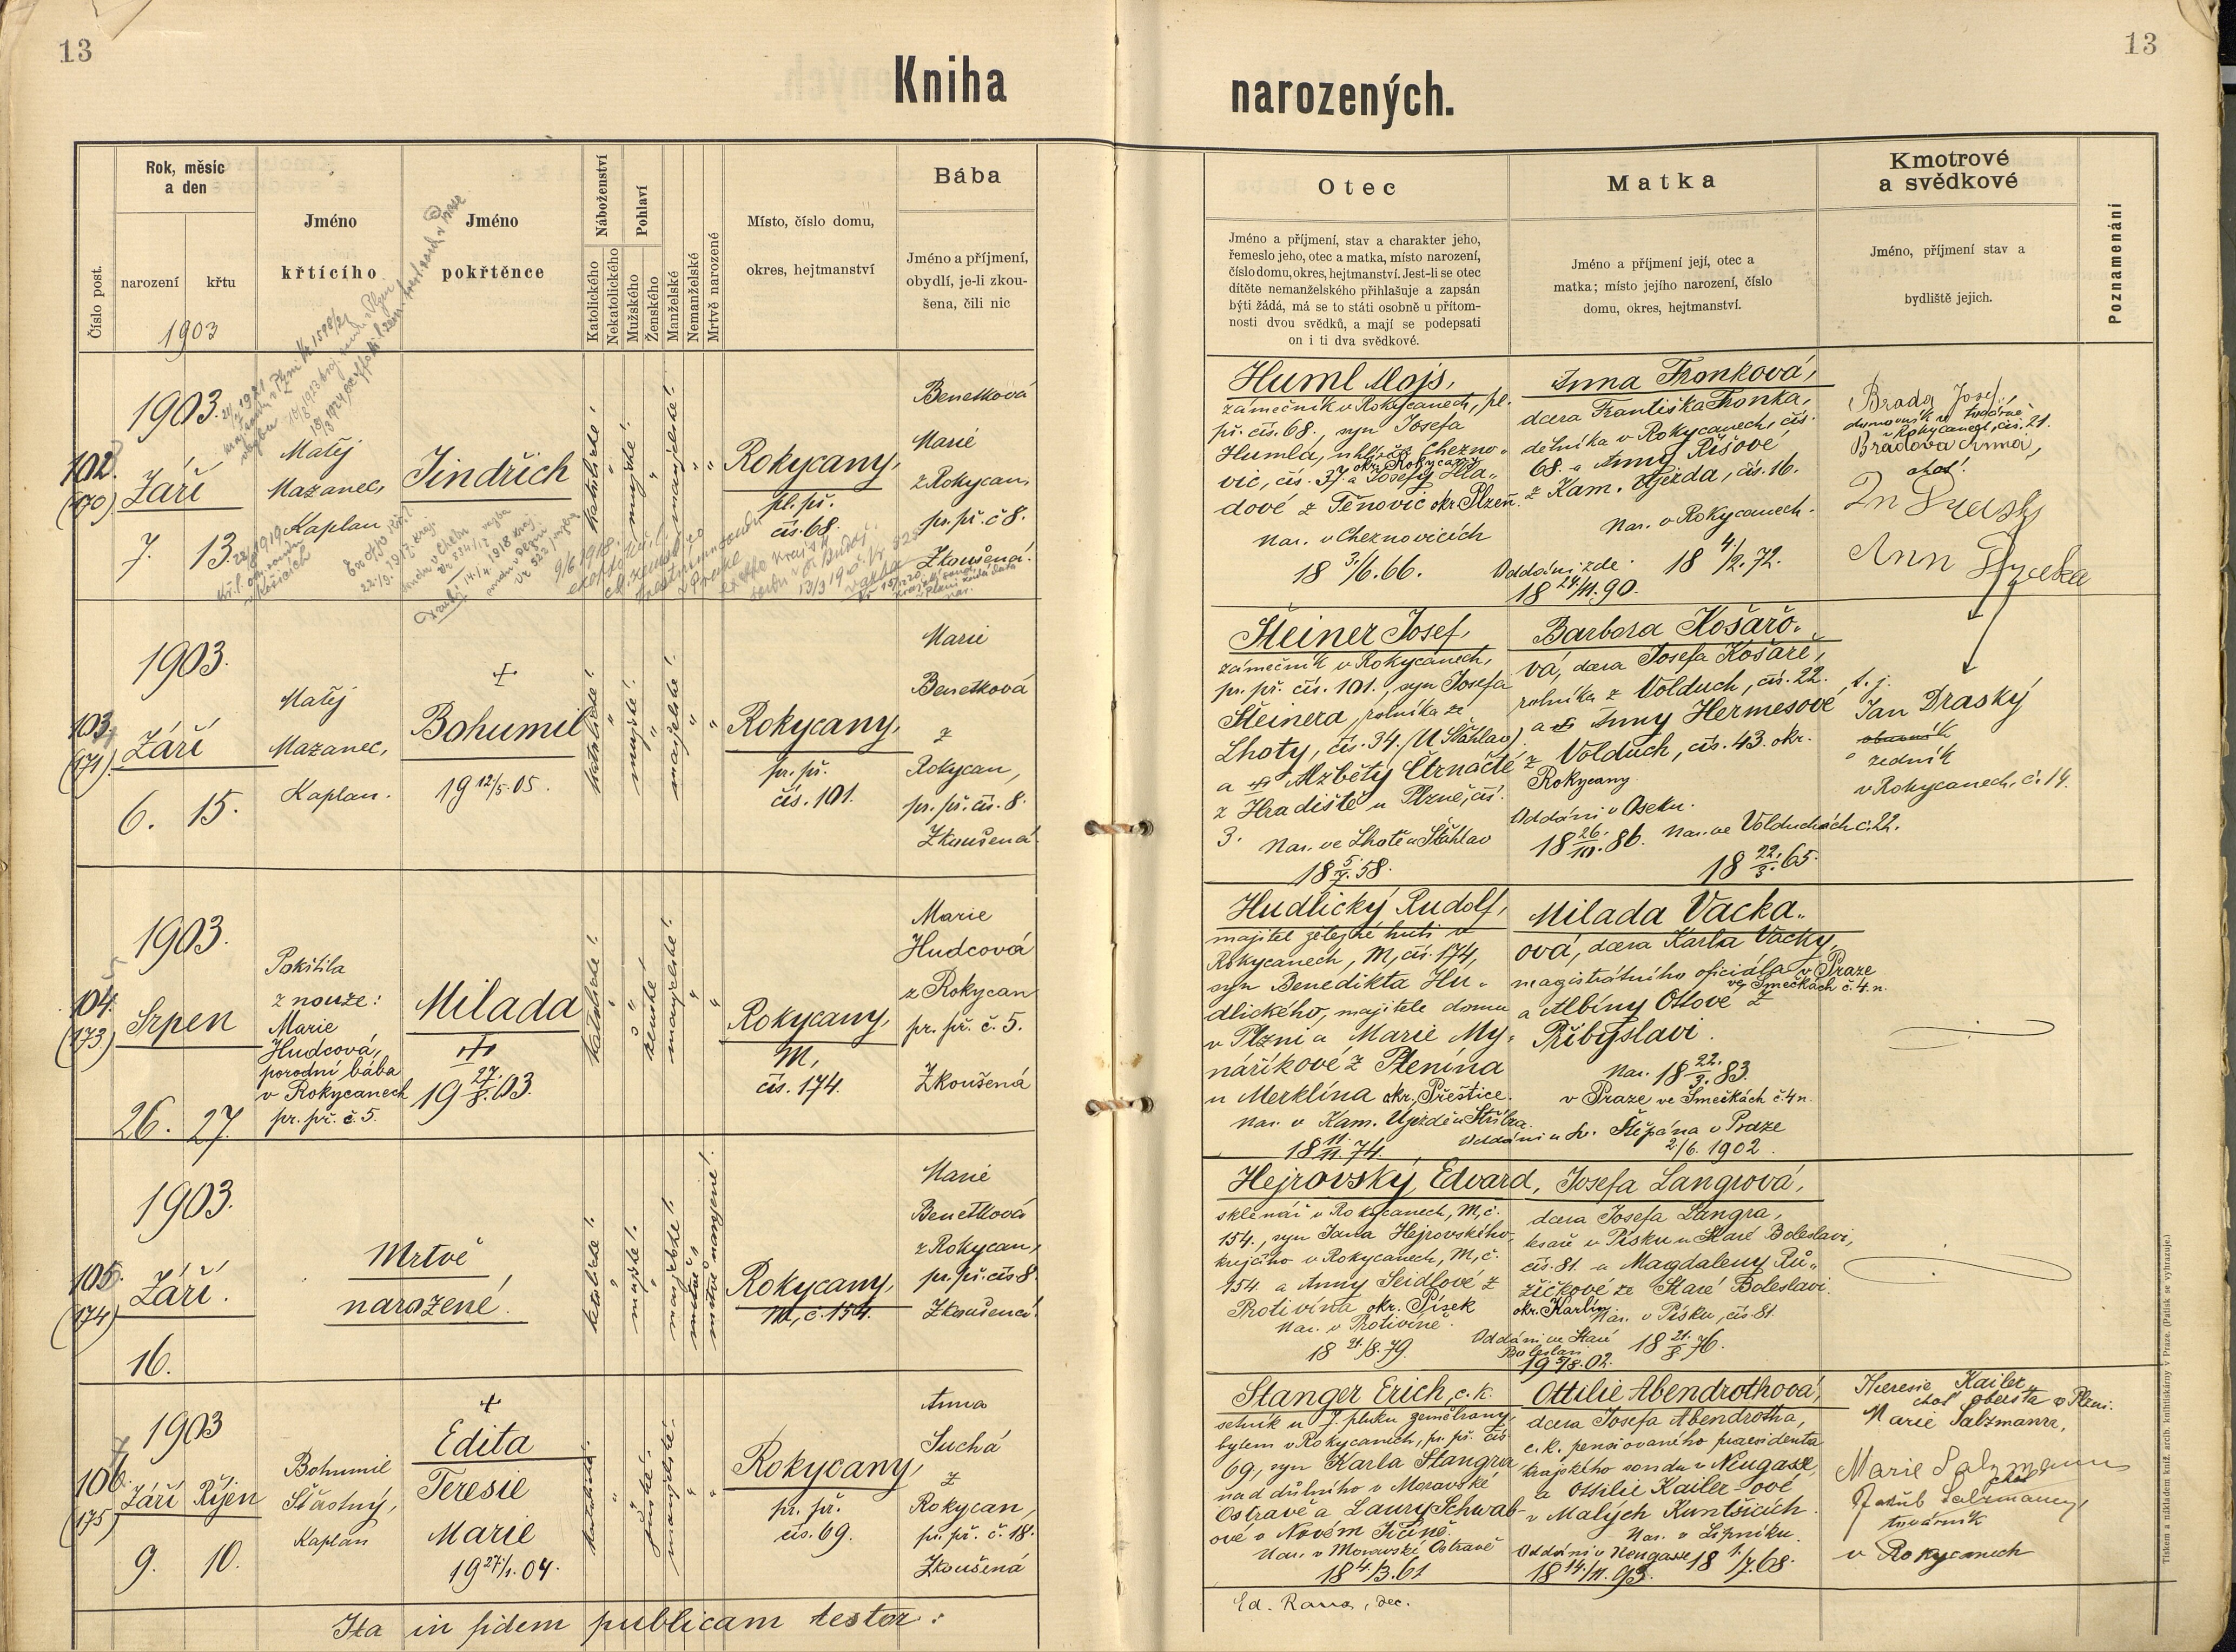 13
13
Kniha
narozených.
Číslo post.
Rok, měsíc
a den
narození
křtu
1903
Jméno
křtícího
Jméno
pokřtěnce
Náboženství
Katolického
Nekatolického
Pohlaví
Mužského
Ženského
Manželské
Nemanželské
Mrtvě narozené
Místo, číslo domu,
okres, hejtmanství
Bába
Jméno a příjmení,
obydlí, je-li zkou-
šena, čili nic
Otec
Jméno a příjmení, stav a charakter jeho,
řemeslo jeho, otec a matka, místo narození,
číslo domu, okres, hejtmanství. Jest-li se otec
dítěte nemanželského přihlašuje a zapsán
býti žádá, má se to státi osobně u přítom-
nosti dvou svědků, a mají se podepsati
on i ti dva svědkové.
Matka
Jméno a příjmení její, otec a
matka; místo jejího narození, číslo
domu, okres, hejtmanství.
Kmotrové
a svědkové
Jméno, příjmení stav a
bydliště jejich.
Poznamenání
102.
(170)
1903.
Září
7. 13.
Matěj
Mazanec,
Kaplan
Jindřich
katolické!
"
mužské!
"
manželské!
"
"
Rokycany,
pl. př.
čís. 68.
Benetková
Marie
z Rokycan,
pr. př. č 8.
Zkoušená!
Huml Alojs,
zámečník v Rokycanech, pl.
př. čís. 68., syn Josefa
Humla, uhlíře z Chezno-
vic, čís. 37. okr. Rokycany a Josefy Hla-
dové z Těnovic okr. Plzeň.
nar. v Cheznovicích
18 3/6. 66.
Anna Fronková,
dcera Františka Fronka,
dělníka v Rokycanech, čís.
68. a Anny Píšové
z Kam. Újezda, čís. 16.
Nar. v Rokycanech.
18 4/2. 72.
Oddáni zde
18 24/11. 90.
Brada Josef,
v Rokycanech, čís. 21.
Bradova Anna,
choť!
103.
(171)
1903.
Září
6. 15.
Matěj
Mazanec,
Kaplan.
+
Bohumil
19 12/5. 05.
katolické!
"
mužské!
"
manželské!
"
"
Rokycany,
pr. př.
čís. 101.
Marie
Benetková
z
Rokycan,
pr. př. čís. 8.
Zkoušená!
Šteiner Josef,
zámečník v Rokycanech,
pr. př. čís. 101., syn Josefa
Šteinera, rolníka ze
Lhoty, čís. 34. (u Štáhlav)
a Alžběty Čtrnácté
z Hradiště u Plzně, čís.
3. Nar. ve Lhotě u Štáhlav
18 5/7. 58.
Barbora Košařo-
vá, dcera Josefa Košaře,
rolníka z Volduch, čís. 22.
a Anny Hermesové
z Volduch, čís. 43. okr.
Rokycany.
Oddáni v Oseku.
18 26./10. 86. Nar. ve Volduchách č. 22.
18 22./3. 65.
t. j.
Jan Draský
zedník
v Rokycanech, č. 14.
104.
(173)
1903.
Srpen
26. 27.
Pokřtila
z nouze:
Marie
Hudcová,
porodní bába
v Rokycanech
pr. př. č. 5.
Milada
19 27./8. 03.
katolické!
"
"
ženské!
manželské!
"
"
Rokycany,
M,
čís. 174.
Marie
Hudcová
z Rokycan
pr. př. č. 5.
Zkoušená
Hudlický Rudolf,
majitel železné huti v
Rokycanech, M, čís. 174,
syn Benedikta Hu-
dlického, majitele domu
v Plzni a Marie My-
náříkové z Ptenína
u Merklína okr. Přeštice.
Nar. v Kam. Újezdě u Stříbra
18 11./11. 74.
Milada Vacka-
ová, dcera Karla Vacky,
magistrátního oficiála v Praze
ve Smečkách č. 4. n.
a Albíny Ottové z
Přibyslavi.
Nar. 18 22./3. 83.
v Praze ve Smečkách č. 4 n.
Oddáni u sv. Štěpána v Praze
2./6. 1902.
105.
(174)
1903.
Září.
16.
Mrtvě
narozené!
katolické!
"
mužské!
"
manželské!
"
mrtvě narozené!
Rokycany,
M, č. 154.
Marie
Benetková
z Rokycan,
pr. př. čís 8.
Zkoušená!
Hejrovský Edvard,
sklenář v Rokycanech, M, č.
154., syn Jana Hejrovského,
krejčího v Rokycanech, M, č.
154. a Anny Seidlové z
Protivína okr. Písek
Nar. v Protivíně.
18 21./8. 79.
Josefa Langrová,
dcera Josefa Langra,
tesaře v Písku u Staré Boleslavi,
čís. 81. a Magdaleny Rů-
žičkové ze Staré Boleslavi.
okr. Karlín. Nar. v Písku, čís. 81.
Oddáni ve Staré
Boleslavi
18 21./8. 76.
106.
(175)
1903
Září Říjen
9. 10.
Bohumil
Šťastný,
Kaplan
+
Edita
Teresie
Marie
19 27/1. 04.
katolické!
"
ženské!
manželské!
"
"
Rokycany,
pr. př.
čís. 69.
Anna
Suchá
z
Rokycan,
pr. př. č. 18.
Zkoušená
Stanger Erich, c. k.
setník u 7. pluku zeměbrany
bytem v Rokycanech, pr. př. čís.
69, syn Karla Stangra
v Moravské
Ostravě a Laury Schwab-
ové v Novém Jičíně.
Nar. v Moravské Ostravě
18 4./3. 61
Ottilie Abendrothová,
dcera Josefa Abendrotha,
c. k. pensiovaného praesidenta
krajského soudu v Neugasse,
a Ottilie Kailer-ové
v Malých Kuntšicích.
Nar. v Lipníku.
Oddáni v Neugasse 18 1./7. 68.
18 14./11. 93.
Theresie Kailer,
choť obersta v Plzni.
Marie Salzmanna,
Marie Salzmann
choť
Jakub Salzmann,
továrník
v Rokycanech
Ita in fidem publicam testor:
Ed. Rana, dec.
Tiskem a nákladem kníž. arcib. knihtiskárny v Praze. (Patisk se vyhrazuje.)